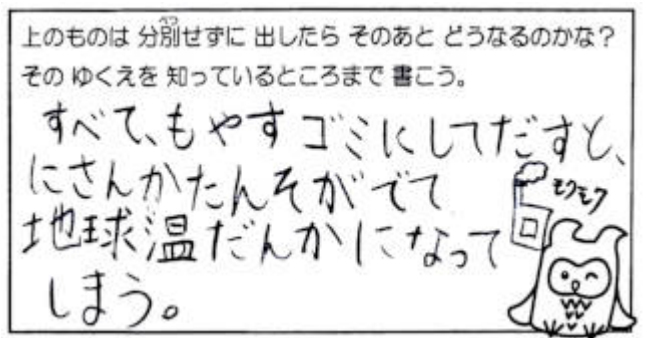 上のものは 分別せずに 出したら そのあと どうなるのかな?
その ゆくえを 知っているところまで 書こう。
すべて、もやすゴミにしてだすと、
にさんかたんそがでて
モクモク
地球温だんかになって
しまう。